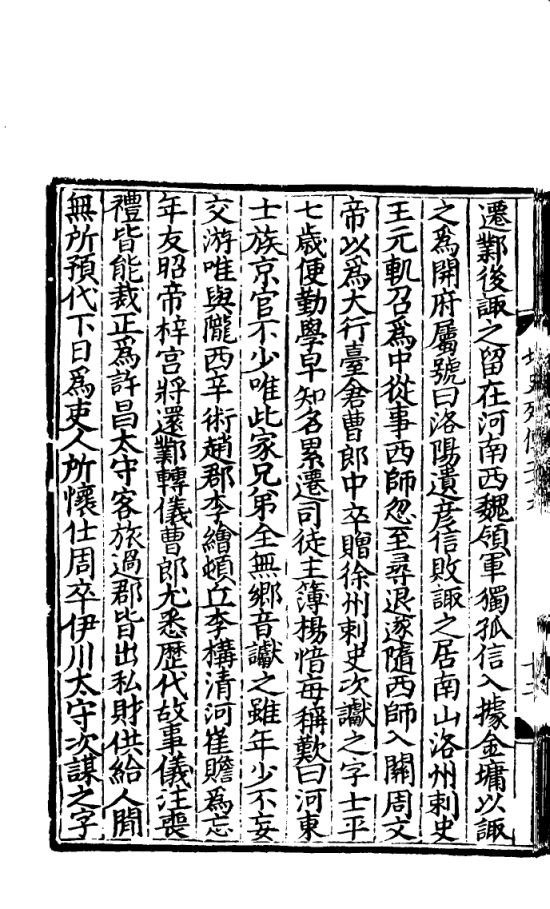 遷鄴後諏之留在河南西魏領軍獨孤信入據金墉以諏
之爲開府屬號曰洛陽遺彦信敗諏之居南山洛州刺史
王元軌召爲中從事西師忽至尋退遂隨西師入關周文
帝以爲大行臺倉曹郎中卒贈徐州刺史次讞之字士平
七歲便勤學早知名累遷司徒主簿楊愔每稱歎曰河東
士族京官不少唯此家兄弟全無鄉音讞之雖年少不妄
交游唯與隴西辛術趙郡李繪頓丘李構清河崔贍爲忘
年友昭帝梓宫將還鄴轉儀曹郎尤悉歷代故事儀注喪
禮皆能裁正爲許昌太守客旅過郡皆出私財供給人閒
無所預代下日爲吏人所懷仕周卒伊川太守次謀之字